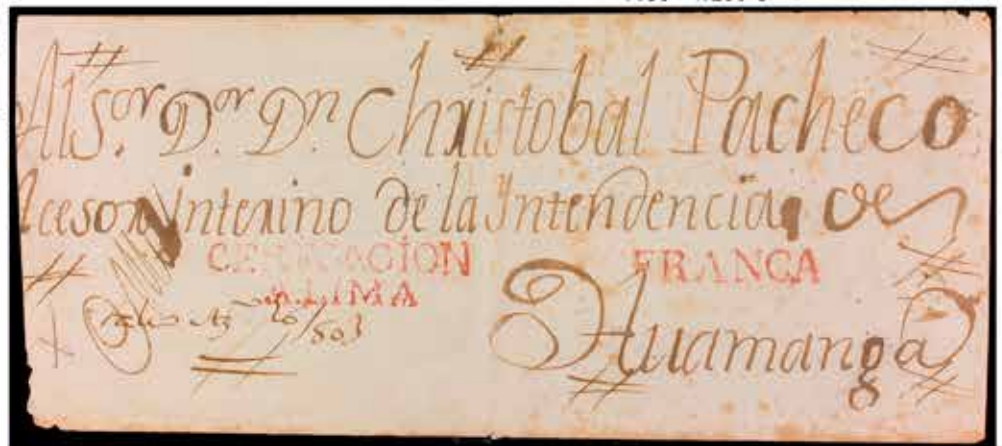 Al S.or D.or D.n Christobal Pacheco
Acesor Interino de la Intendencia de
CERTIFICACION FRANCA
LIMA
20/803
Huamanga